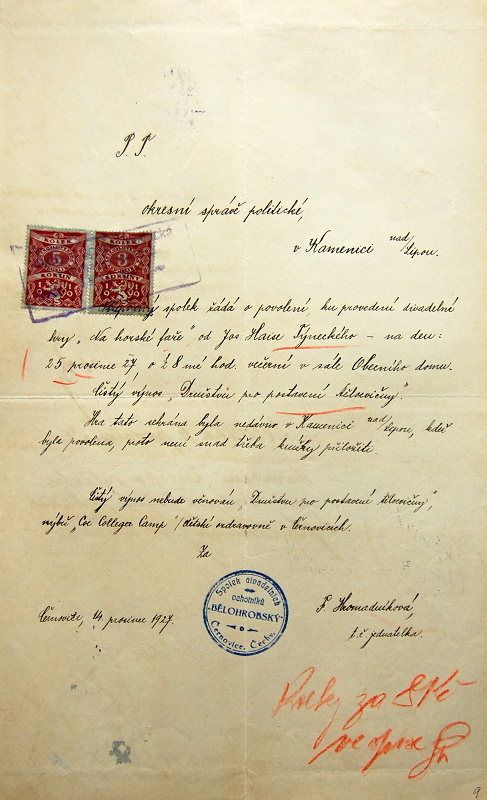 P. T.
okresní správě politické,
v Kamenici nad/Lipou.
KOLEK KOLEK
5 3
KORUN KORUNY
spolek žádá o povolení ku provedení divadelní
hry „Na horské faře" od Jos. Haise Týneckého – na den:
25. prosince 27, o 8 mé hod. večerní v sále Obecního domu.
Čistý výnos „Družstvu pro postavení tělocvičny".
Hra tato sehrána byla nedávno v Kamenici nad/Lipou, kdež
byla povolena, proto není snad třeba knížky přiložiti.
Čistý výnos nebude věnován „Družstvu pro postavení tělocvičny",
nýbrž „Coe College Camp" /dětské ozdravovně v Černovicích.
Za
Spolek divadelních
ochotníků
BĚLOHROBSKÝ
Černovice, Čechy.
Černovice, 14. prosince 1927.
t. č. jednatelka.
Kolky za 8 Kč
ve spise
9